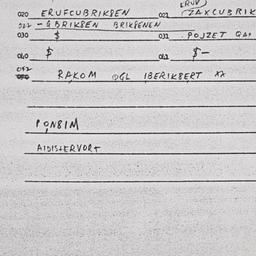 020 ERUFCUBRIKSEN 021 ZAXCUBRIK
022 - QBRIKSEN BRIKSENEN
030 $ 031 POJZET
040 $ 041 $-
RAKOM OGL IBERIKSERT XX
PONSIM
AIDISTERVORT